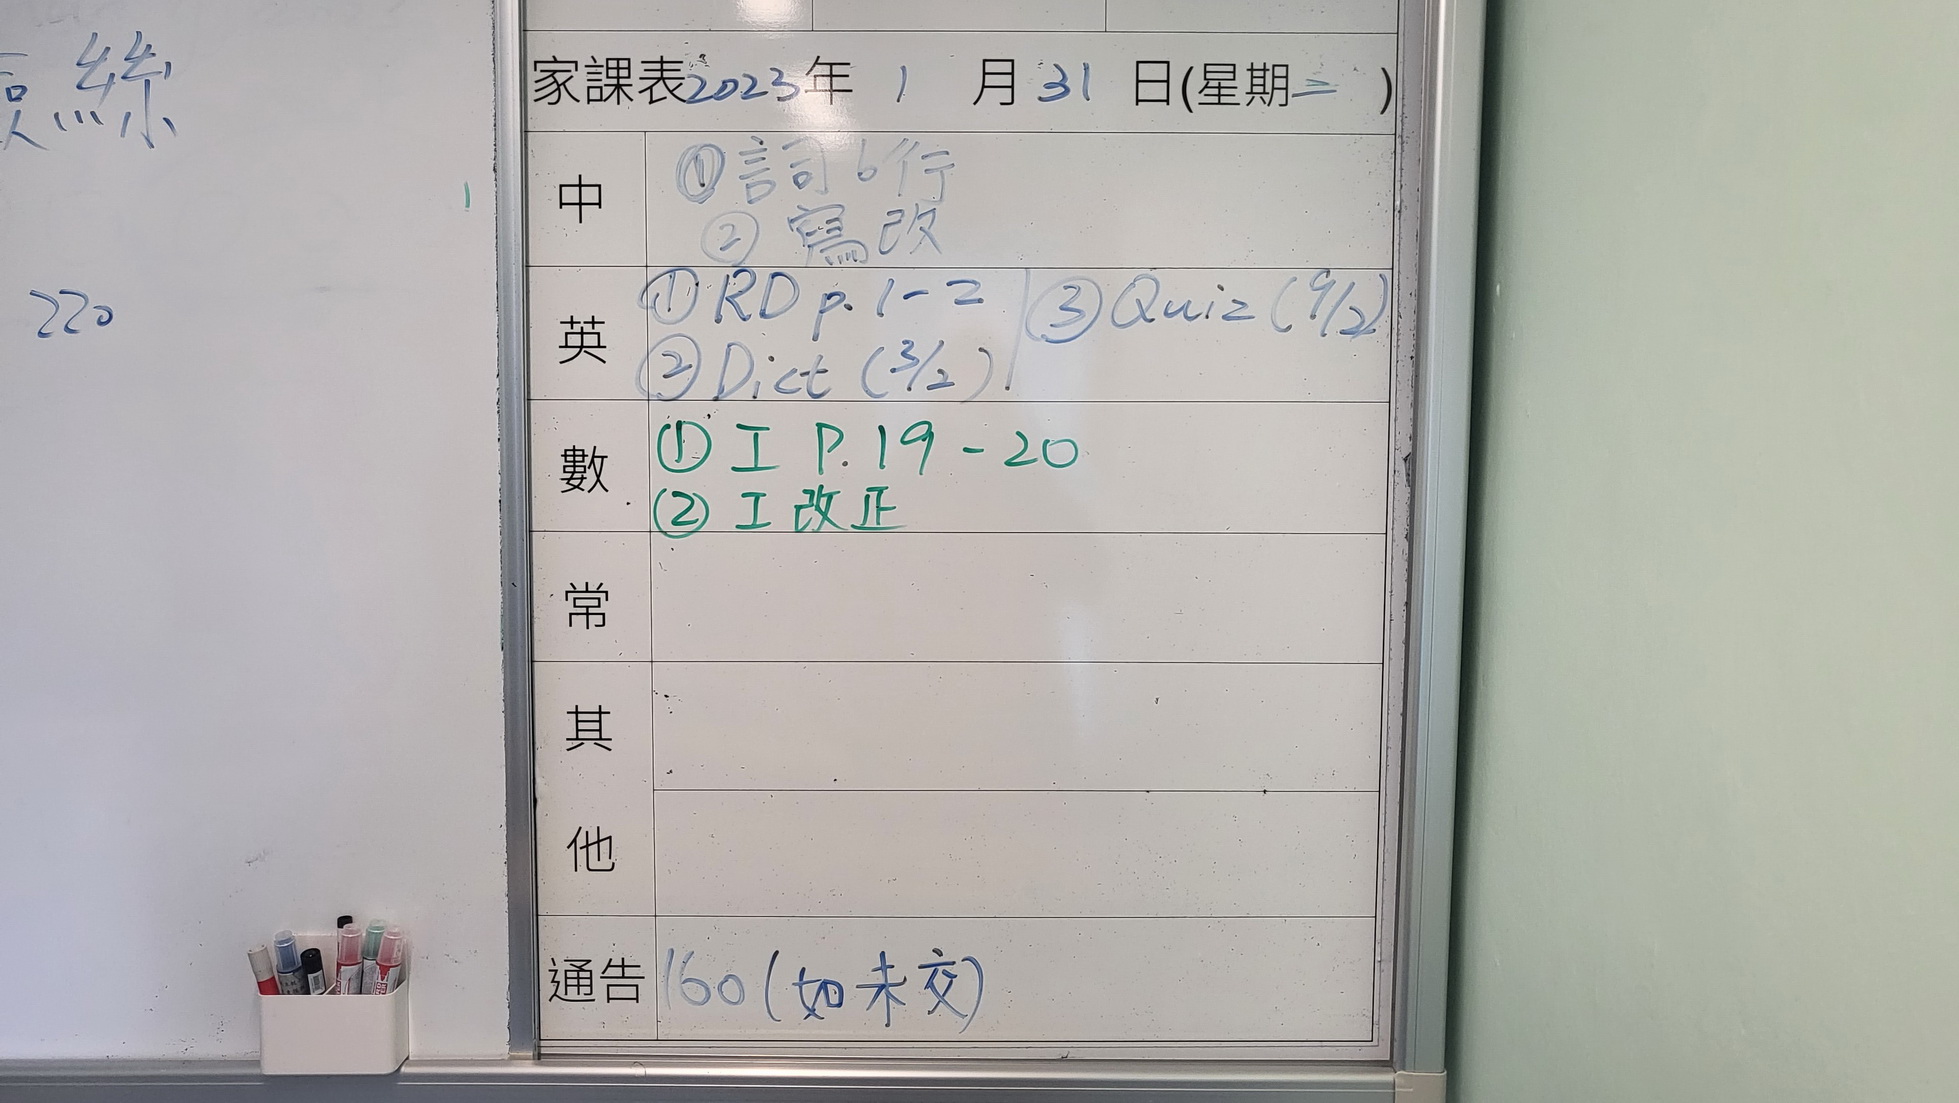 絲
220
家課表2023年 1 月 31 日(星期二 )
中
① 詞 6 行
② 寫改
英
① RD p. 1-2
② Dict (3/2)
③ Quiz (9/2)
數
① 工 P. 19 - 20
② 工 改正
常
其
他
通告
160 (如未交)